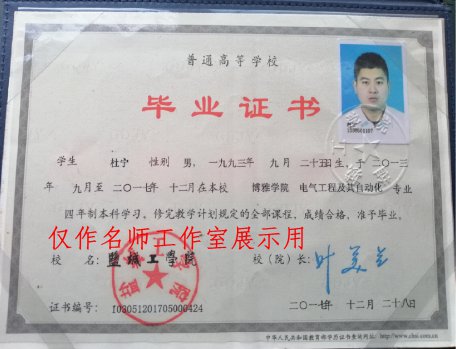 普通高等学校
毕业证书
学生 杜宁 性别 男，一九九三年 九月 二十五日，生，于二〇一三
年 九月至二〇一七年 十二月在本校 博雅学院 电气工程及其自动化 专业
四年制本科学习，修完教学计划规定的全部课程，成绩合格，准予毕业。
仅作名师工作室展示用
校 名：盐城工学院 校（院）长：
证书编号：103051201705000424 二〇一七年 十二月 二十八日
中华人民共和国教育部学历证书查询网址：http://www.chsi.com.cn